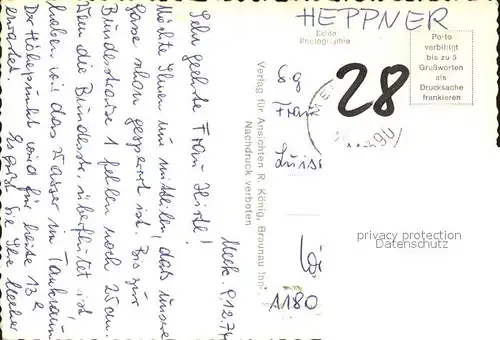 HEPPNER
Echte
Photographie
Porto
verbilligt
bis zu 5
Grußworten
als
Drucksache
frankieren
28
Meck. 9.12.74
Sehr geehrte Frau Hirte!
Möchte Ihnen nur mitteilen, daß unsere
Gasse schon gesperrt ist. Bis zur
Bundesstraße 1 fehlen noch 25 cm.
Wenn die Bundesstr. überflutet ist,
haben wir das Wasser im Tankraum
Der Höhepunkt wird für heute 13 h
erwartet. Es grüßt Sie Ihr
Verlag für Ansichten R. König, Braunau Inn
Nachdruck verboten
S. g.
Frau
Luise
Wi
A180
privacy protection
Datenschutz